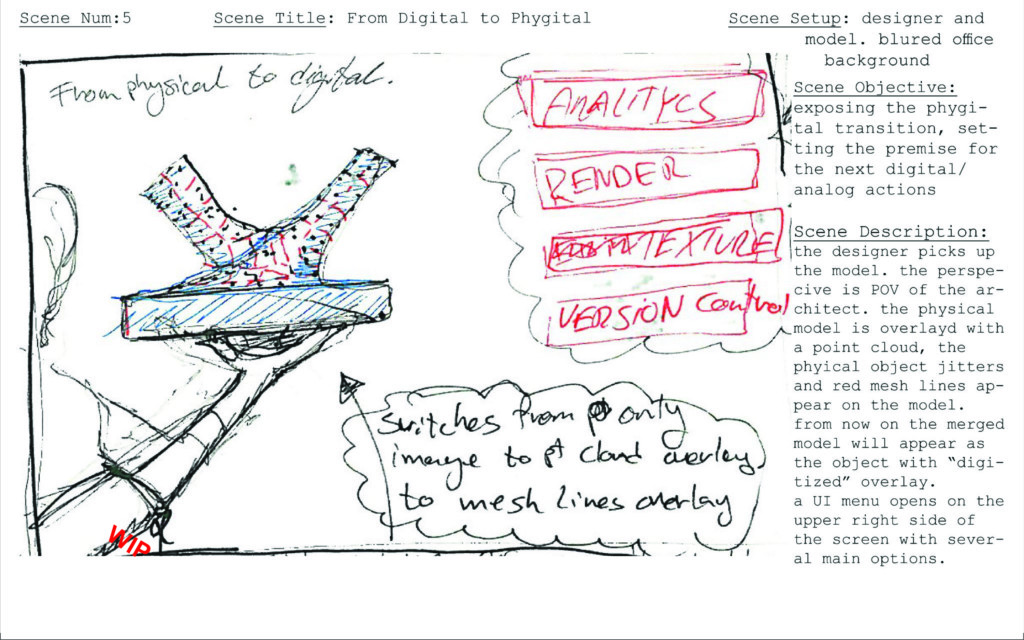 Scene Num:5
Scene Title: From Digital to Phygital
Scene Setup: designer and
model. blured office
background
Scene Objective:
exposing the phygi-
tal transition, set-
ting the premise for
the next digital/
analog actions
Scene Description:
the designer picks up
the model. the perspe-
cive is POV of the ar-
chitect. the physical
model is overlayd with
a point cloud, the
phyical object jitters
and red mesh lines ap-
pear on the model.
from now on the merged
model will appear as
the object with “digi-
tized” overlay.
a UI menu opens on the
upper right side of
the screen with sever-
al main options.
From physical to digital.
ANALITYCS
RENDER
TEXTURE
VERSION Control
switches from only
image to pt cloud overlay
to mesh lines overlay
WIP